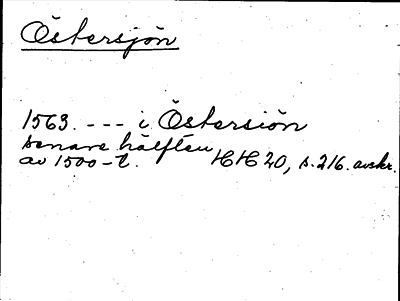 Östersjön
1563. --- i Östersiön
senare hälften
av 1500-t. HH 20, s. 216. avskr.